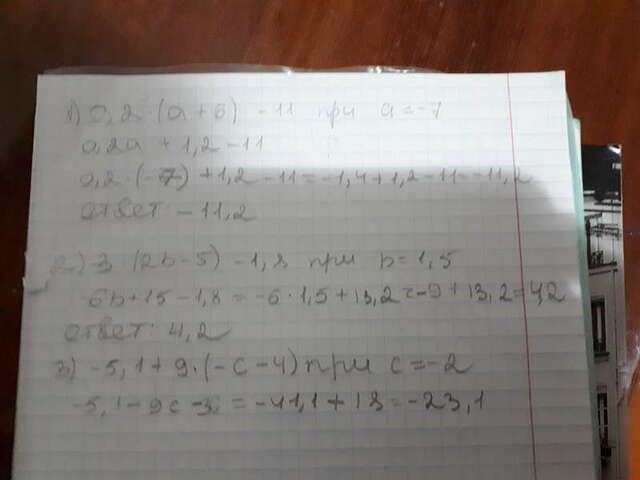 1) 0,2 · (a + 6) - 11 при a = -7
0,2a + 1,2 - 11
0,2 · (-7) + 1,2 - 11 = -1,4 + 1,2 - 11 = -11,2
ответ: -11,2
2) 3 (2b - 5) - 1,8 при b = 1,5
6b + 15 - 1,8 = -6 · 1,5 + 13,2 = -9 + 13,2 = 4,2
ответ: 4,2
3) -5,1 + 9 · (-c - 4) при c = -2
-5,1 - 9c - 36 = -41,1 + 18 = -23,1